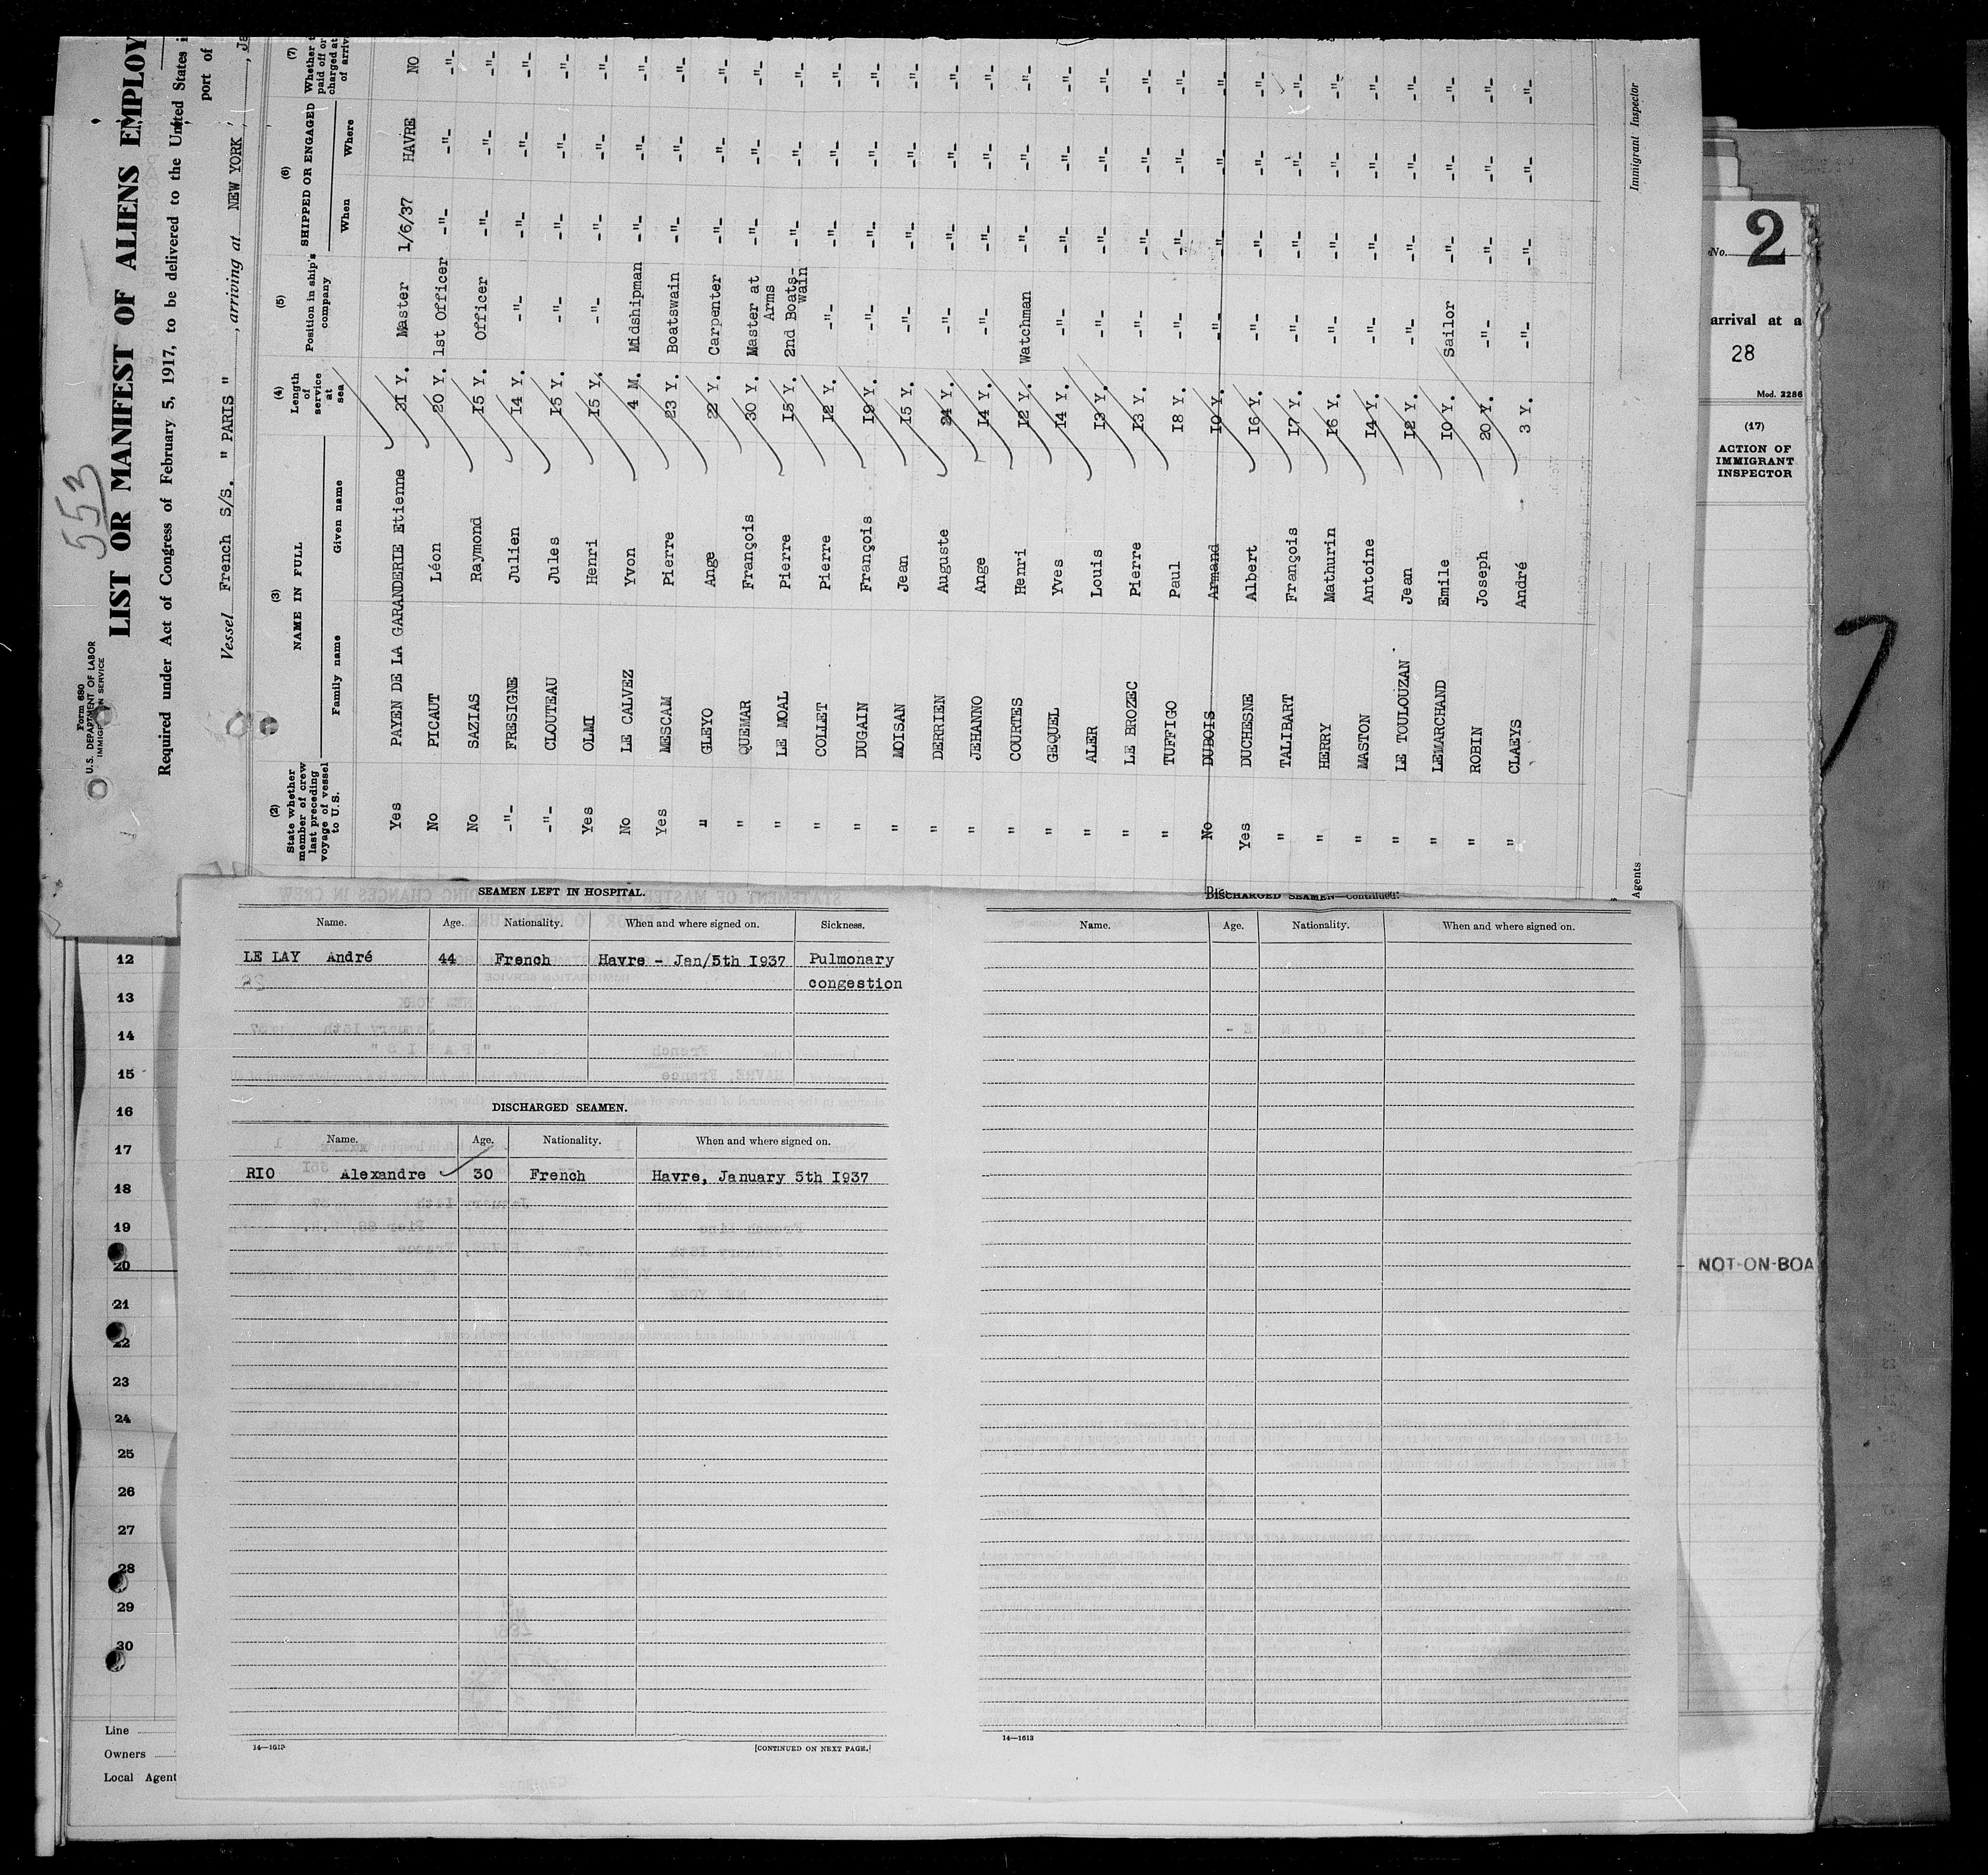 553
Form 680
U.S. DEPARTMENT OF LABOR
IMMIGRATION SERVICE
LIST OR MANIFEST OF ALIENS EMPLOY
Required under Act of Congress of February 5, 1917, to be delivered to the United States
port of
Vessel French S/S. " PARIS " , arriving at NEW YORK ,
(2) State whether member of crew last preceding voyage of vessel to U.S.
(3) NAME IN FULL
Family name Given name
(4) Length of service at sea
(5) Position in ship's company
(6) SHIPPED OR ENGAGED
When Where
(7)
Yes PAYEN DE LA GARANDERIE Etienne 31 Y. Master 1/6/37 HAVRE NO
No PICAUT Léon 20 Y. 1st Officer -"- -"- -"-
No SAZIAS Raymond 15 Y. Officer -"- -"- -"-
-"- FRESIGNE Julien 14 Y. -"- -"- -"- -"-
-"- CLOUTEAU Jules 15 Y. -"- -"- -"- -"-
Yes OLMI Henri 15 Y. -"- -"- -"- -"-
No LE CALVEZ Yvon 4 M. Midshipman -"- -"- -"-
Yes MESCAM Pierre 23 Y. Boatswain -"- -"- -"-
" GLEYO Ange 22 Y. Carpenter -"- -"- -"-
" QUEMAR François 30 Y. Master at Arms -"- -"- -"-
" LE MOAL Pierre 15 Y. 2nd Boats-wain -"- -"- -"-
" COLLET Pierre 12 Y. -"- -"- -"- -"-
" DUGAIN François 19 Y. -"- -"- -"- -"-
" MOISAN Jean 15 Y. -"- -"- -"- -"-
" DERRIEN Auguste 24 Y. -"- -"- -"- -"-
" JEHANNO Ange 14 Y. -"- -"- -"- -"-
" COURTES Henri 12 Y. Watchman -"- -"- -"-
" GEQUEL Yves 14 Y. -"- -"- -"- -"-
" ALER Louis 13 Y. -"- -"- -"- -"-
" LE BROZEC Pierre 13 Y. -"- -"- -"- -"-
" TUFFIGO Paul 18 Y. -"- -"- -"- -"-
No DUBOIS Armand 10 Y. -"- -"- -"- -"-
Yes DUCHESNE Albert 16 Y. -"- -"- -"- -"-
" TALIBART François 17 Y. -"- -"- -"- -"-
" HERRY Mathurin 16 Y. -"- -"- -"- -"-
" MASTON Antoine 14 Y. -"- -"- -"- -"-
" LE TOULOUZAN Jean 12 Y. -"- -"- -"- -"-
" LEMARCHAND Emile 10 Y. Sailor -"- -"- -"-
" ROBIN Joseph 20 Y. -"- -"- -"- -"-
" CLAEYS André 3 Y. -"- -"- -"- -"-
Agents
Immigrant Inspector
No. 2
arrival at a
28
Mod. 2286
(17)
ACTION OF
IMMIGRANT
INSPECTOR
7
NOT-ON-BOA
SEAMEN LEFT IN HOSPITAL.
Name. Age. Nationality. When and where signed on. Sickness.
LE LAY André 44 French Havre - Jan/5th 1937 Pulmonary
congestion
DISCHARGED SEAMEN.
Name. Age. Nationality. When and where signed on.
RIO Alexandre 30 French Havre, January 5th 1937
14—1613 [CONTINUED ON NEXT PAGE.]
DISCHARGED SEAMEN—Continued.
Name. Age. Nationality. When and where signed on.
14—1613
12
13
14
15
16
17
18
19
20
21
22
23
24
25
26
27
28
29
30
Line
Owners
Local Agent